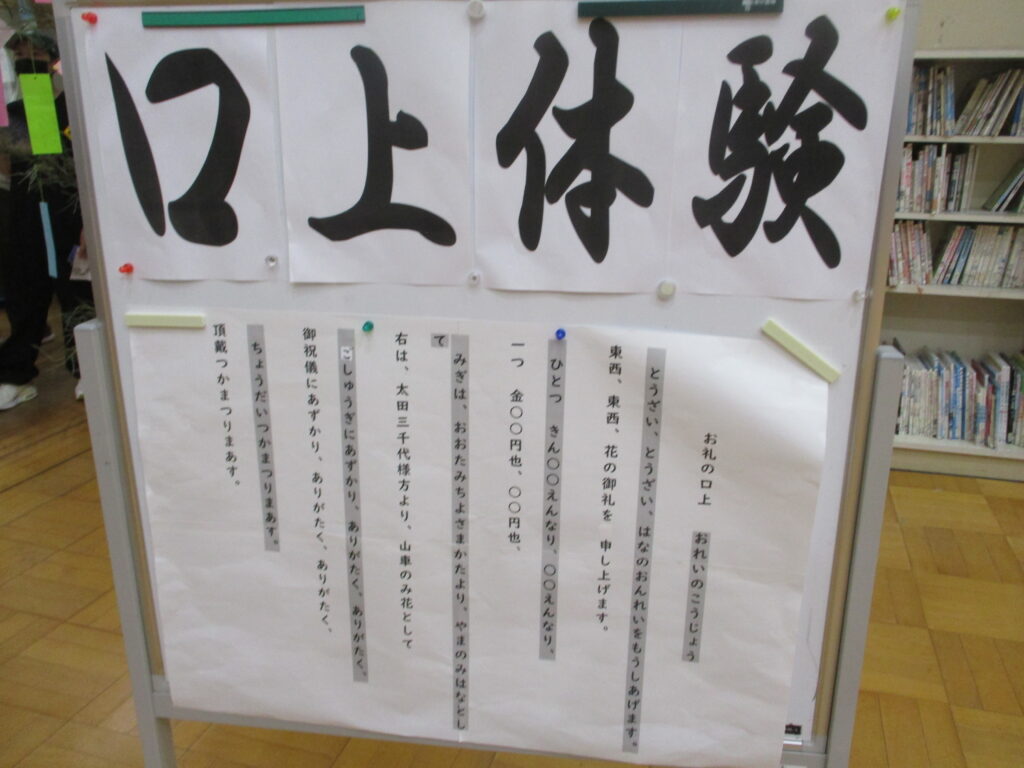 口上体験
お礼の口上　おれいのこうじょう
とうざい、とうざい、はなのおんれいをもうしあげます。
東西、東西、花の御礼を　申し上げます。
ひとつ　きん〇〇えんなり、〇〇えんなり、
一つ　金〇〇円也、〇〇円也、
みぎは、おおたみちよさまかたより、やまのみはなとし
て
右は、太田三千代様方より、山車のみ花として
ごしゅうぎにあずかり、ありがたく、ありがたく、
御祝儀にあずかり、ありがたく、ありがたく、
ちょうだいつかまつりまあす。
頂戴つかまつりまあす。